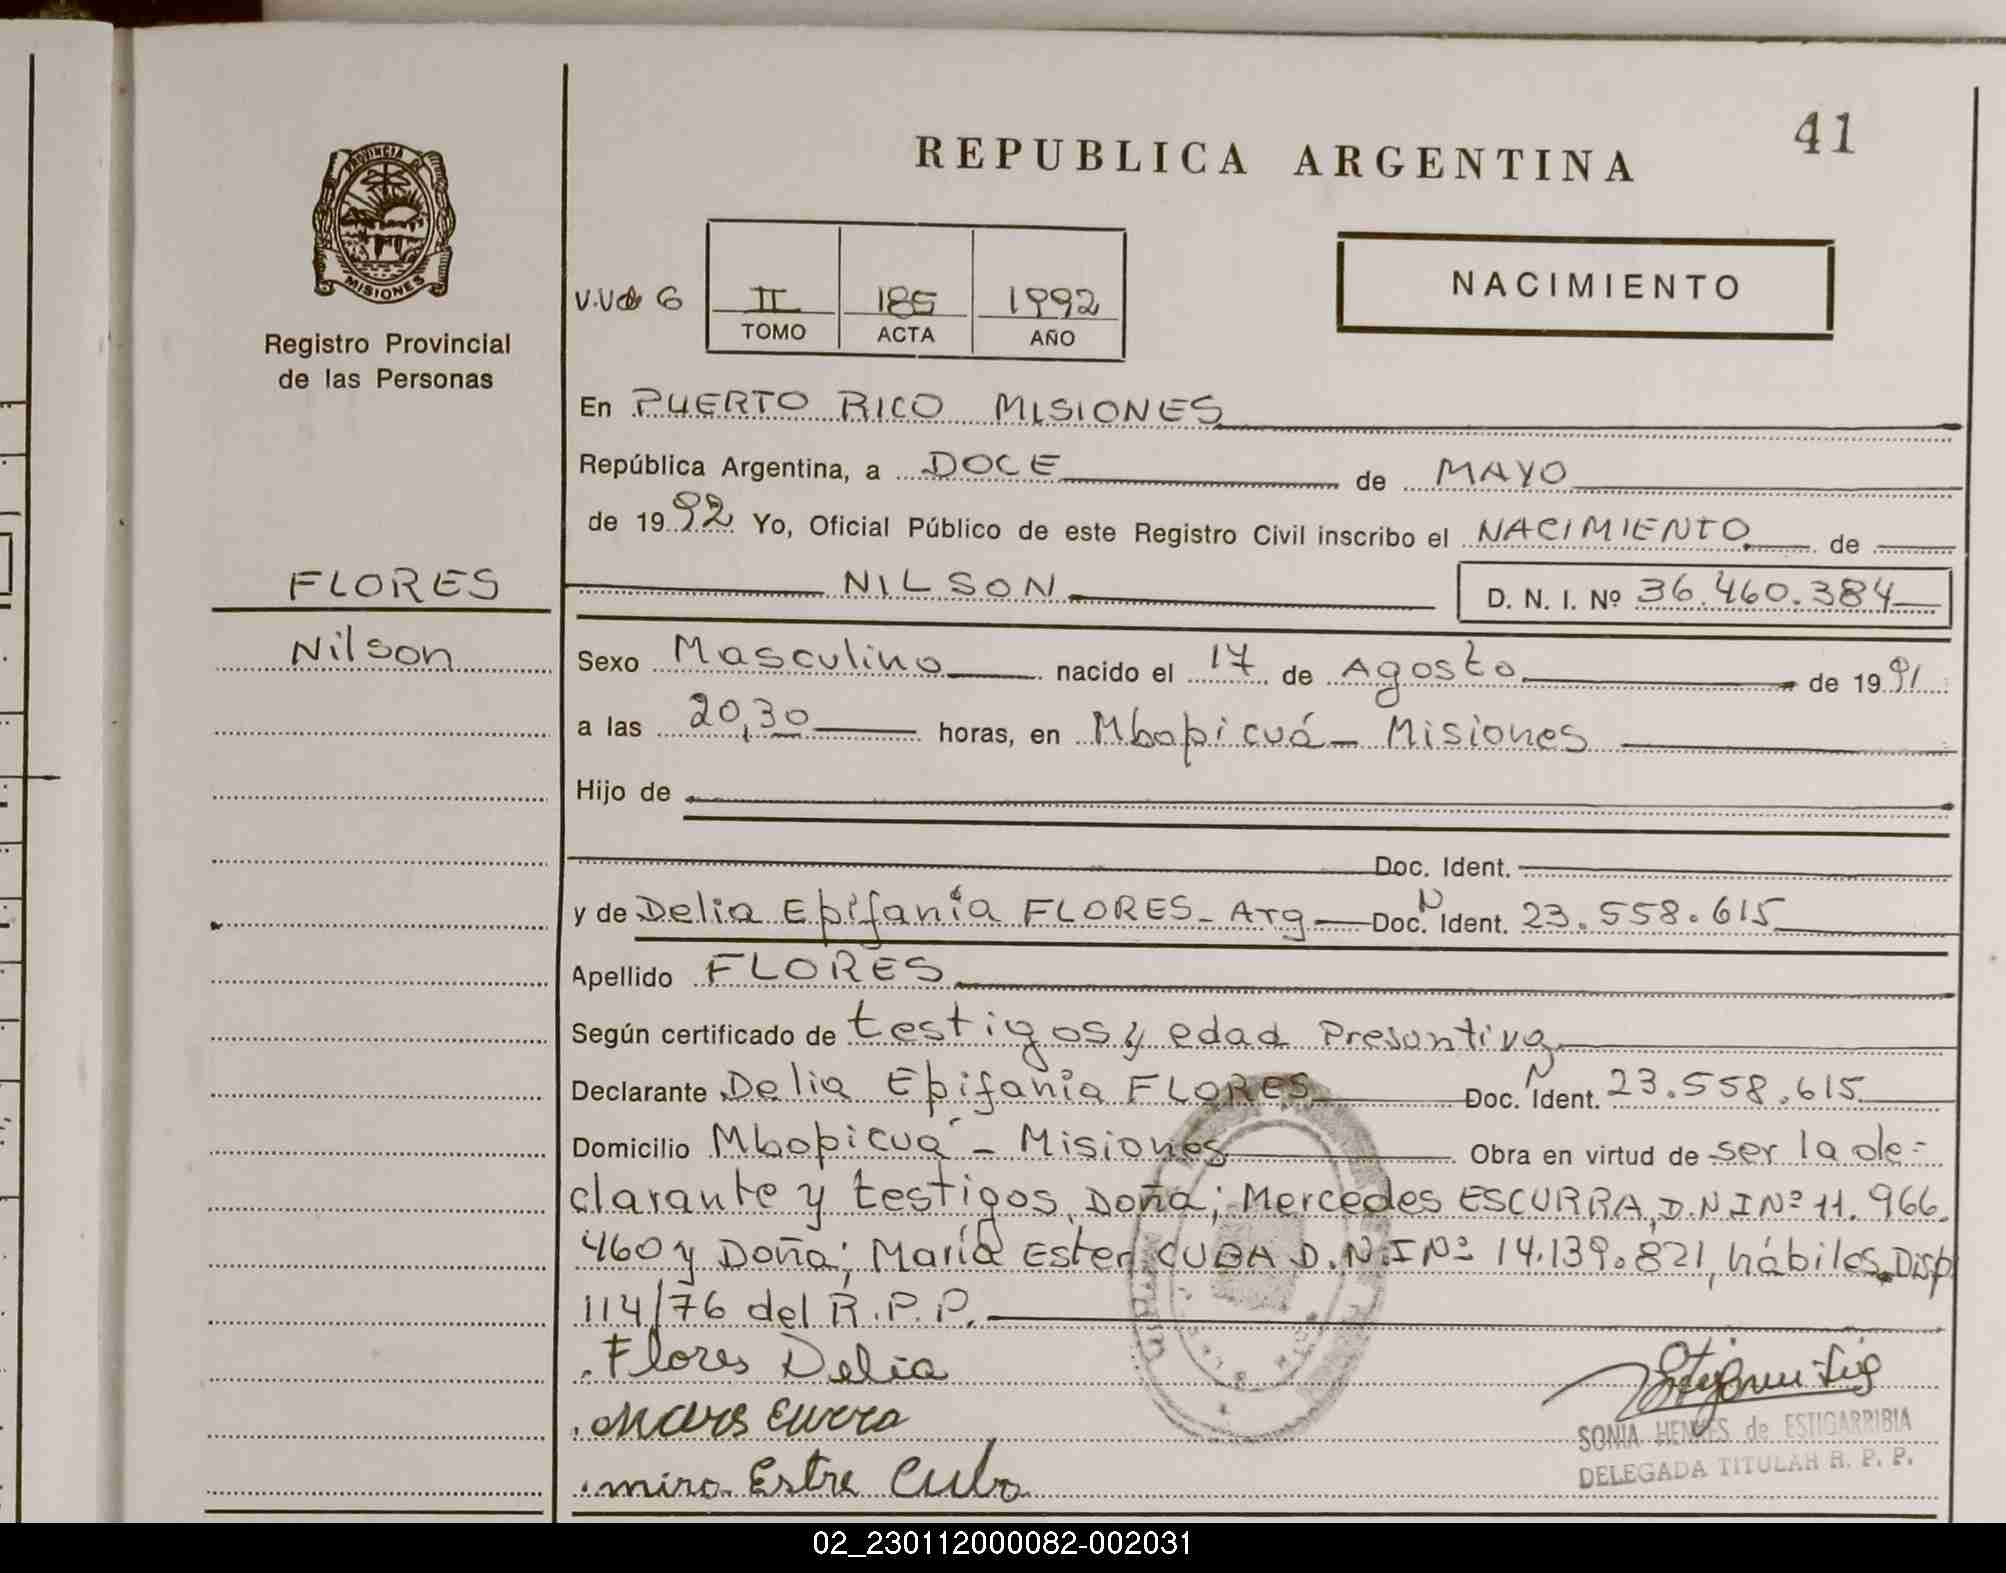 41
REPUBLICA ARGENTINA
PROVINCIA DE
MISIONES
Registro Provincial
de las Personas
NACIMIENTO
II 185 1992
TOMO ACTA AÑO
En PUERTO RICO MISIONES
República Argentina, a DOCE de MAYO
de 1992 Yo, Oficial Público de este Registro Civil inscribo el NACIMIENTO de
FLORES
NILSON D. N. I. Nº 36.460.384
Nilson
Sexo Masculino nacido el 17 de Agosto de 1991
a las 20,30 horas, en Mbopicuá - Misiones
Hijo de
Doc. Ident.
y de Delia Epifanía FLORES - Arg Doc. N Ident. 23.558.615
Apellido FLORES
Según certificado de testigos y edad Presuntiva
Declarante Delia Epifanía FLORES Doc. N Ident. 23.558.615
Domicilio Mbopicuá - Misiones Obra en virtud de ser la de-
clarante y testigos, Doña; Mercedes ESCURRA, D.N.I Nº 11.966.
460 y Doña; María Ester CUBA D.N.I Nº 14.139.821, hábiles. Disp
114/76 del R.P.P.
Flores Delia
SONIA HENNES de ESTIGARRIBIA
DELEGADA TITULAR R. P. P.
02_230112000082-002031